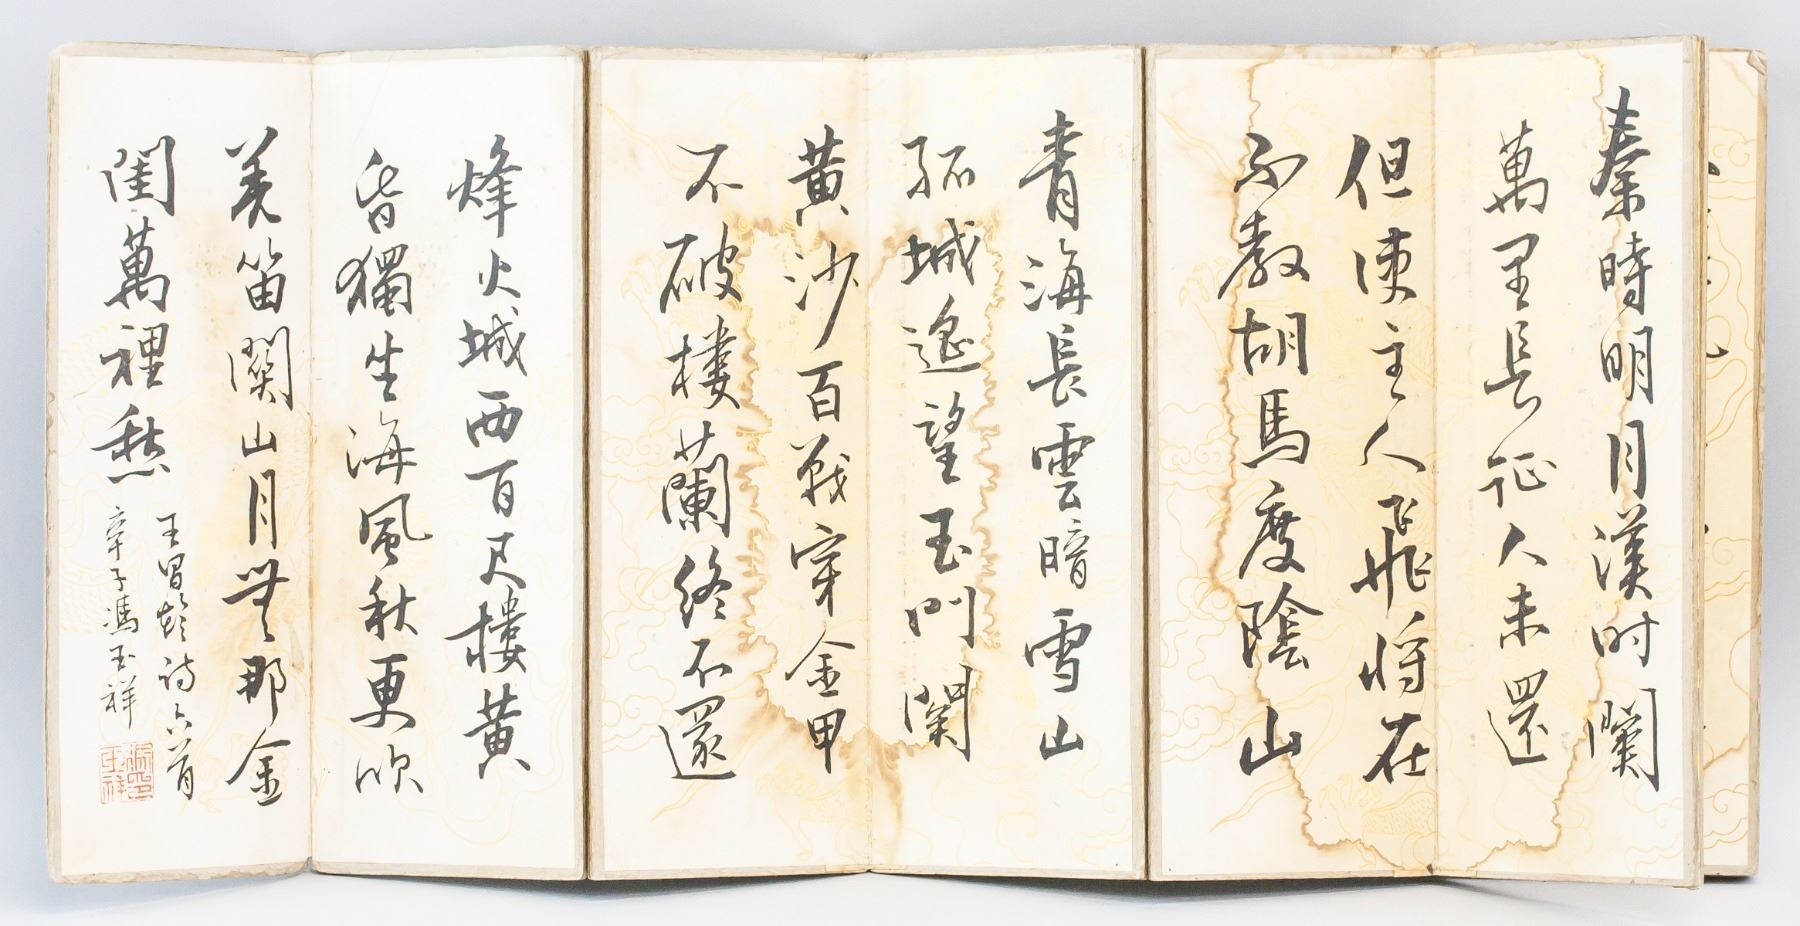 秦時明月漢时關
萬里長征人未還
但使主人飛将在
不教胡馬度陰山
青海長雲暗雪山
孤城遙望玉門関
黄沙百戰穿金甲
不破樓蘭終不還
烽火城西百尺樓黄
昏獨坐海風秋更吹
羌笛關山月無那金
閨萬裡愁
王昌齡詩六首
辛子馮玉祥
馮印玉祥